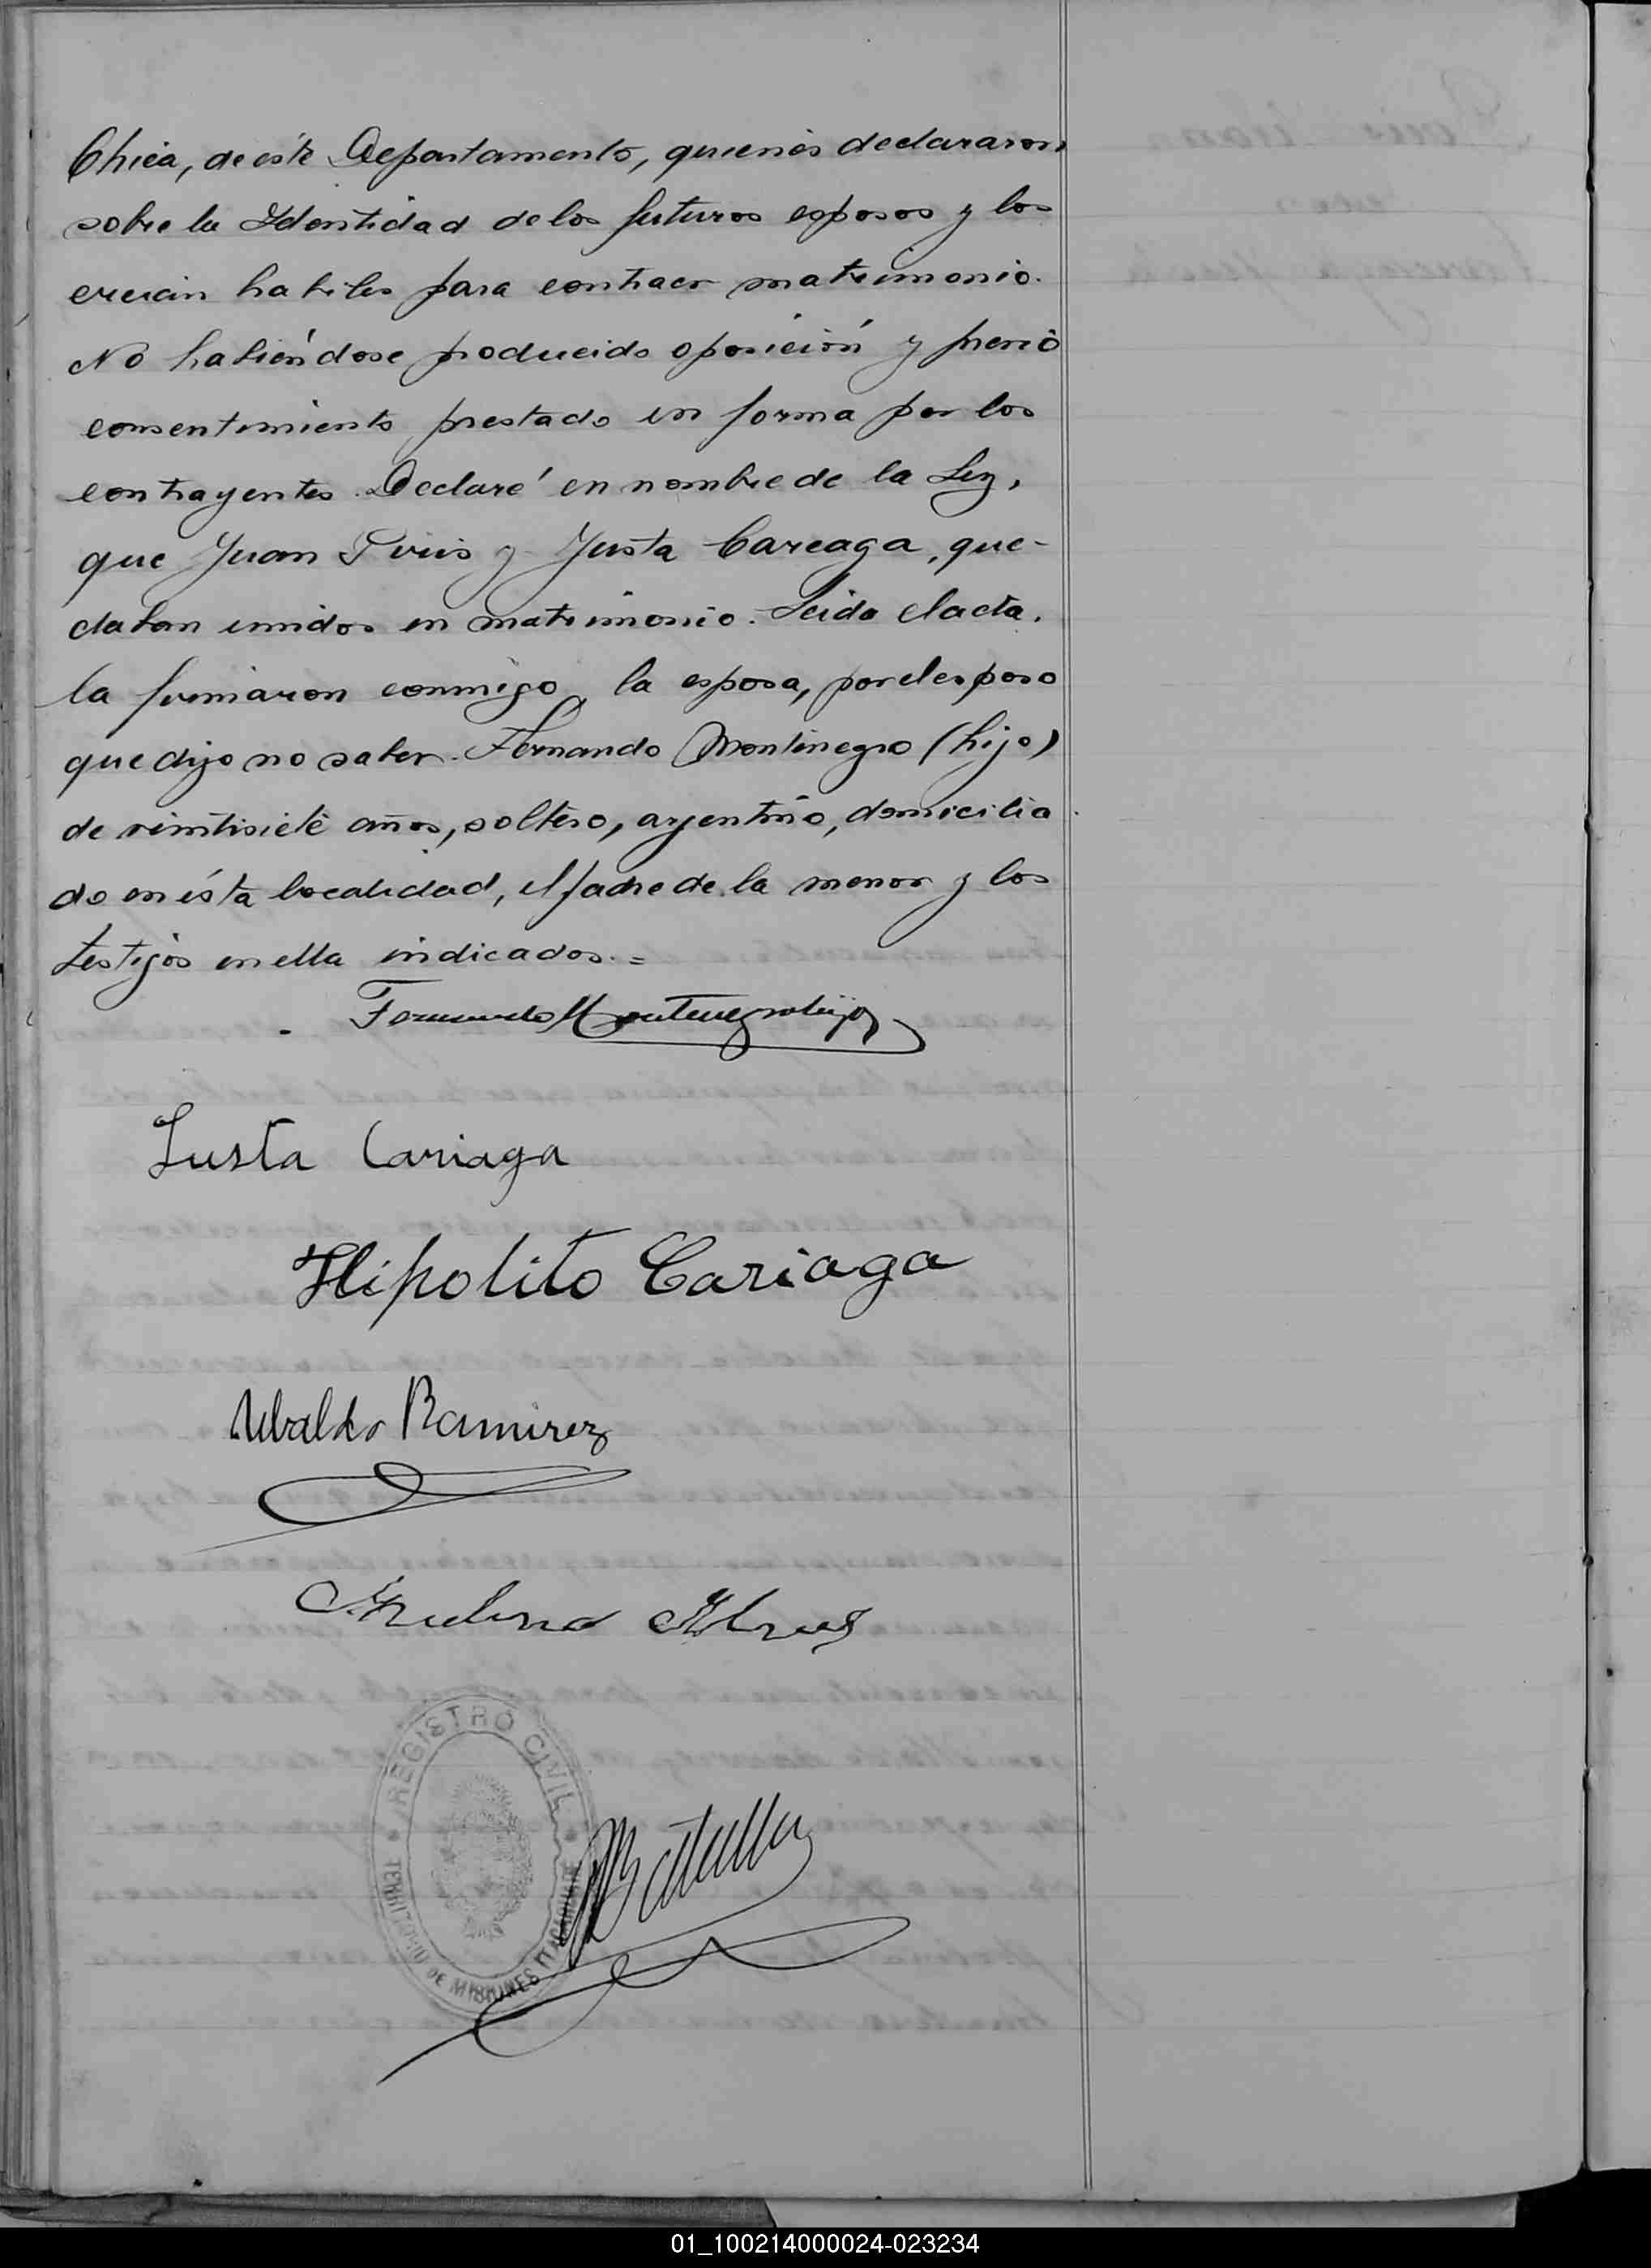 Chica, de éste Departamento, quienes declararon
sobre la Identidad de los futuros esposos y los
creian habiles para contraer matrimonio.
No habiéndose producido oposición y previo
consentimiento prestado en forma por los
contrayentes. Declaré en nombre de la Ley,
que Juan Piris y Justa Careaga, que-
daban unidos en matrimonio. Leida el acta.
la firmaron conmigo, la esposa, por el esposo
que dijo no saber. Fernando Montenegro (hijo)
de veintisiete años, soltero, argentino, domicilia
do en ésta localidad, el padre de la menor y los
testigos en ella indicados.=
Fernando Montenegro hijo
Justa Cariaga
Hipolito Cariaga
Ubaldo Ramirez
REGISTRO CIVIL
TERRITORIO DE MISIONES
01_100214000024-023234